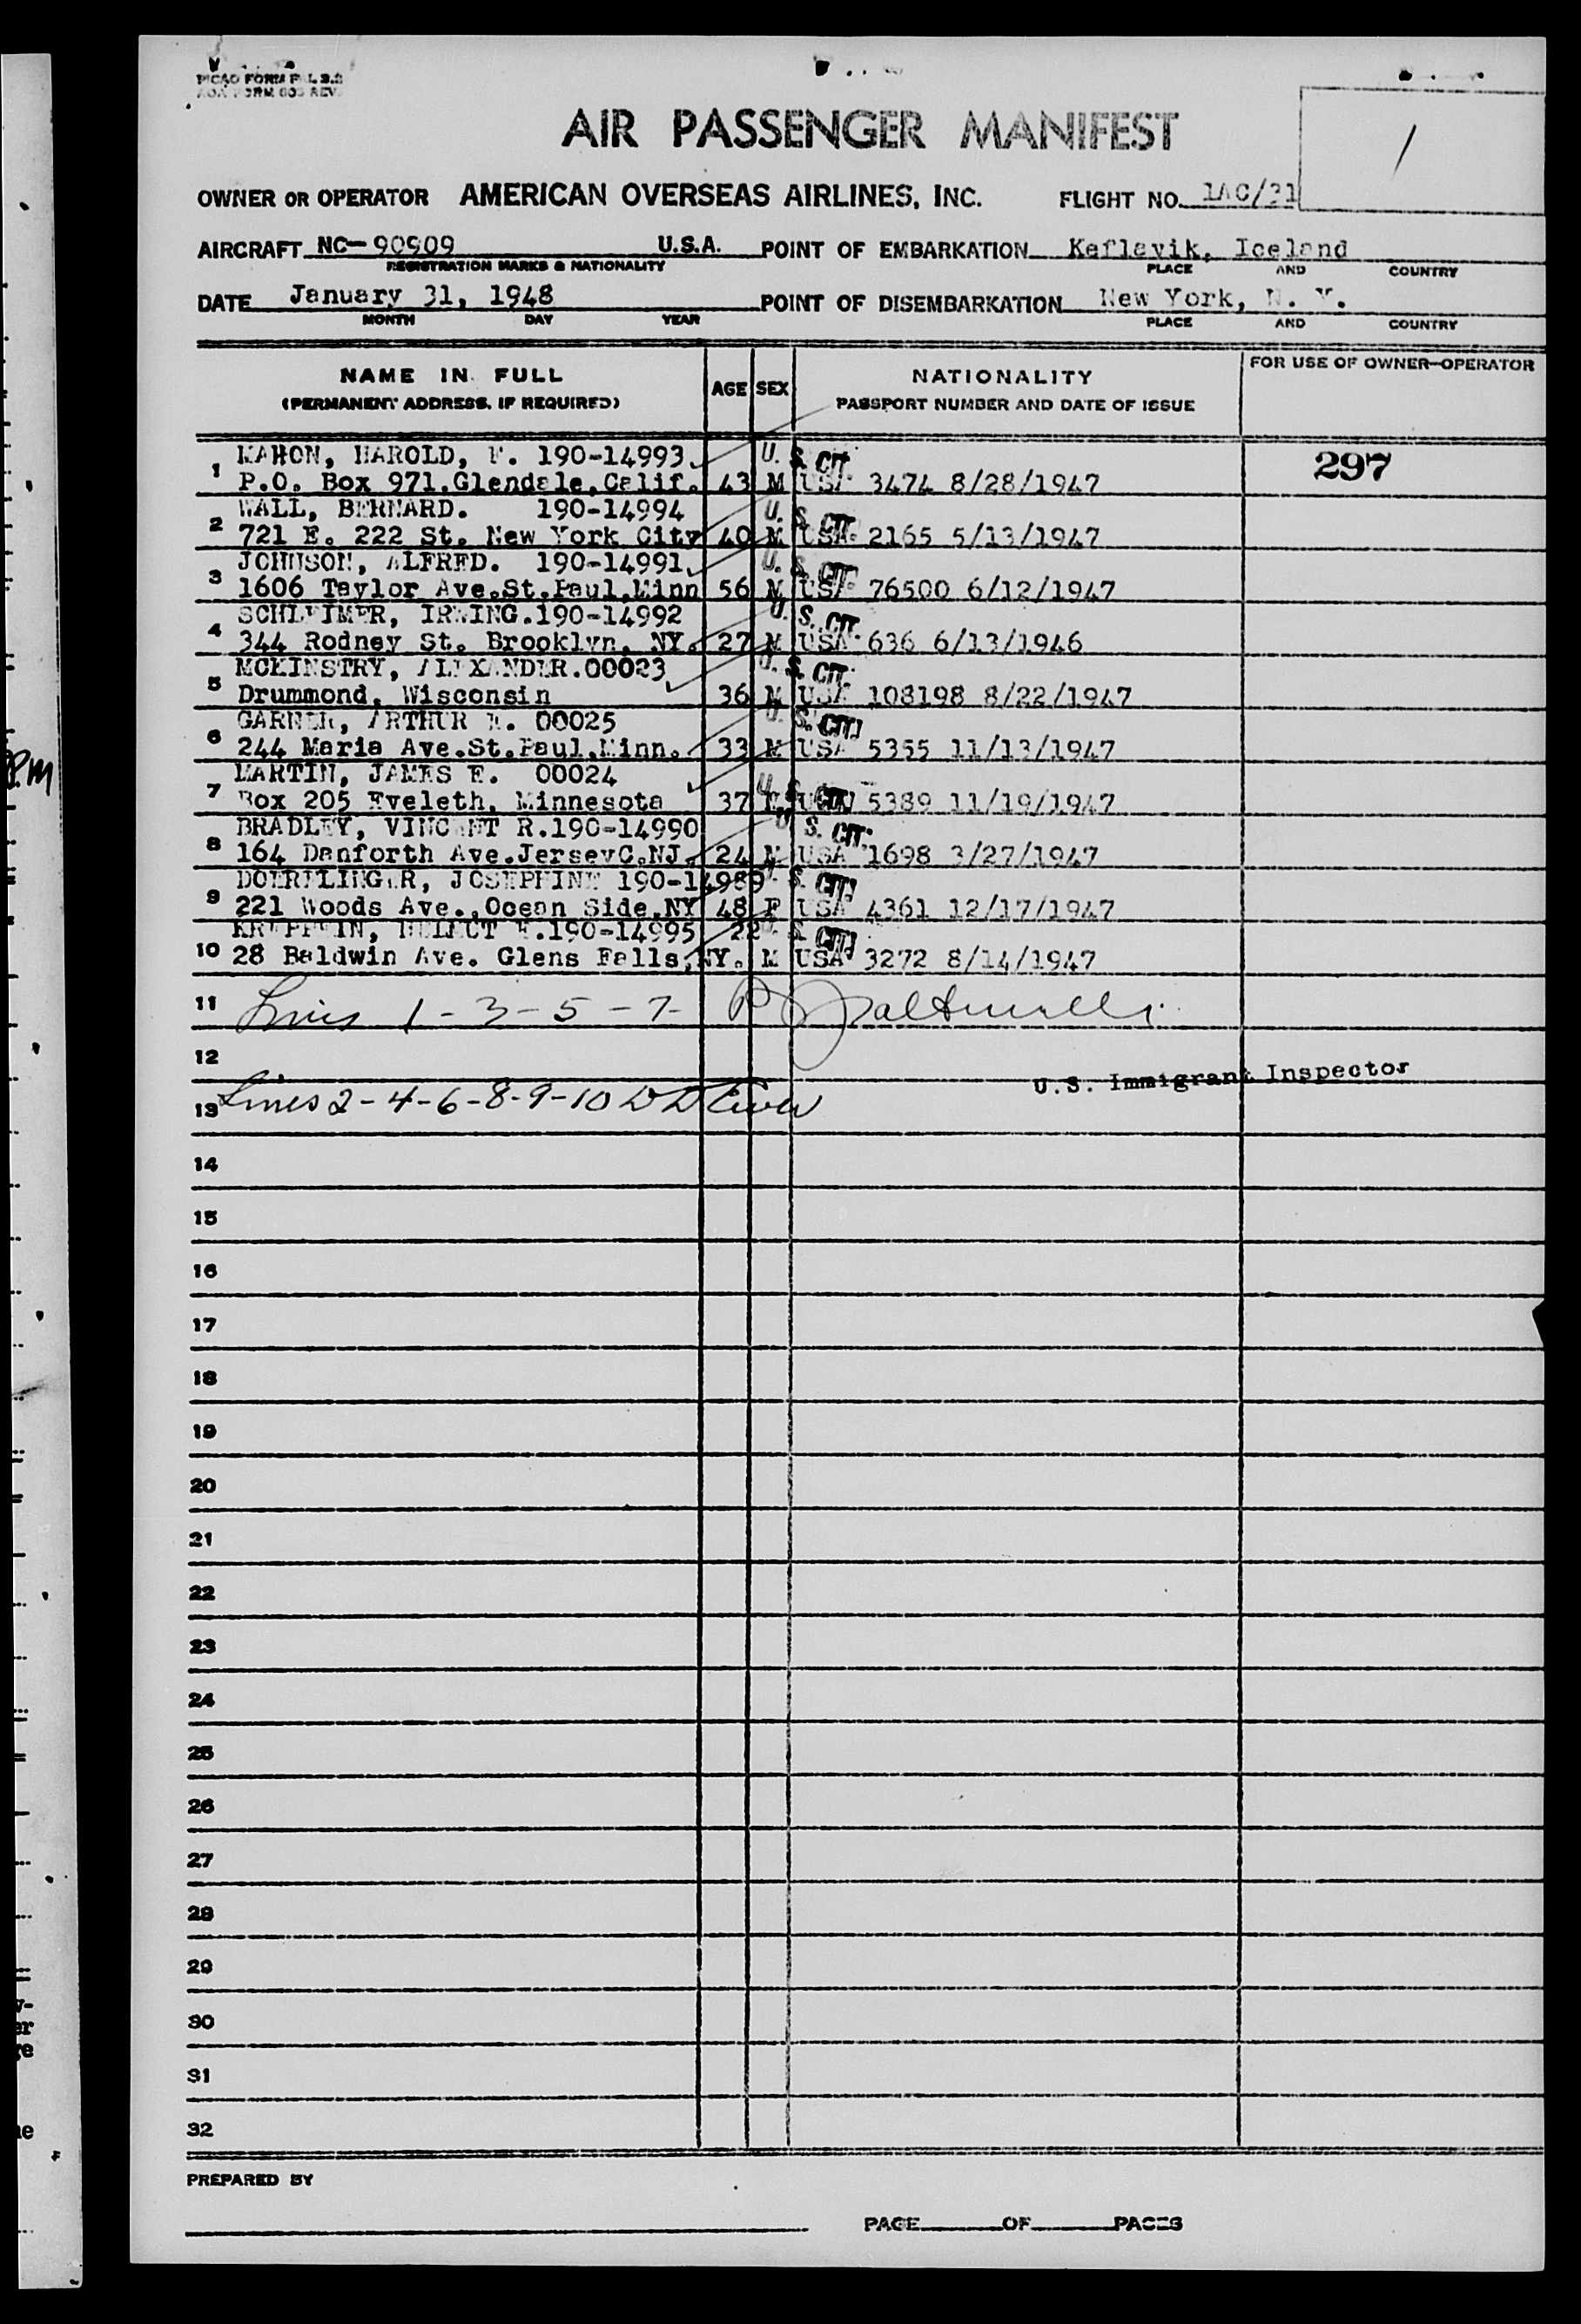 PICAO FORM
AIR PASSENGER MANIFEST
1
OWNER OR OPERATOR AMERICAN OVERSEAS AIRLINES, INC. FLIGHT NO. 1AC/31
AIRCRAFT NC-90909 U.S.A. POINT OF EMBARKATION Keflavik, Iceland
REGISTRATION MARKS & NATIONALITY PLACE AND COUNTRY
DATE January 31, 1948 POINT OF DISEMBARKATION New York, N. Y.
MONTH DAY YEAR PLACE AND COUNTRY
NAME IN FULL AGE SEX NATIONALITY FOR USE OF OWNER-OPERATOR
(PERMANENT ADDRESS, IF REQUIRED) PASSPORT NUMBER AND DATE OF ISSUE
1 MAHON, HAROLD, F. 190-14993 U. S. CIT. 297
P.O. Box 971,Glendale,Calif. 43 M USA 3474 8/28/1947
2 WALL, BERNARD. 190-14994 U. S. CIT.
721 E. 222 St. New York City 40 M USA 2165 5/13/1947
3 JOHNSON, ALFRED. 190-14991 U. S. CIT.
1606 Taylor Ave.St.Paul,Minn 56 M USA 76500 6/12/1947
4 SCHLEIMER, IRWING.190-14992 U. S. CIT.
344 Rodney St. Brooklyn, NY. 27 M USA 636 6/13/1946
5 MCKINSTRY, ALEXANDER.00023 U. S. CIT.
Drummond, Wisconsin 36 M USA 108198 8/22/1947
6 GARNER, ARTHUR 00025 U. S. CIT.
244 Maria Ave.St.Paul,Minn. 33 M USA 5355 11/13/1947
7 MARTIN, JAMES E. 00024 U. S. CIT.
Box 205 Eveleth, Minnesota 37 M USA 5389 11/19/1947
8 BRADLEY, VINCENT R.190-14990 U. S. CIT.
164 Danforth Ave.JerseyC.NJ. 24 M USA 1698 3/27/1947
9 DOERFLINGER, JOSEPHINE 190-14989 U. S. CIT.
221 Woods Ave.,Ocean Side,NY 48 F USA 4361 12/17/1947
10 190-14995 22 U. S. CIT.
28 Baldwin Ave. Glens Falls,NY. M USA 3272 8/14/1947
11 Lines 1-3-5-7-
12
U.S. Immigrant Inspector
13 Lines 2-4-6-8-9-10
14
15
16
17
18
19
20
21
22
23
24
25
26
27
28
29
30
31
32
PREPARED BY
PAGE OF PAGES